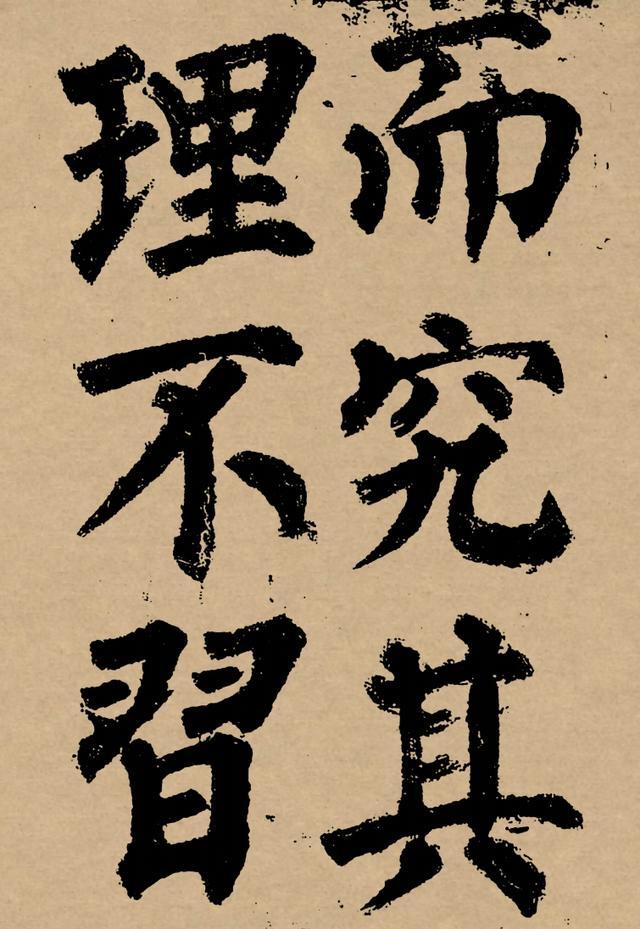 而究其
理不習